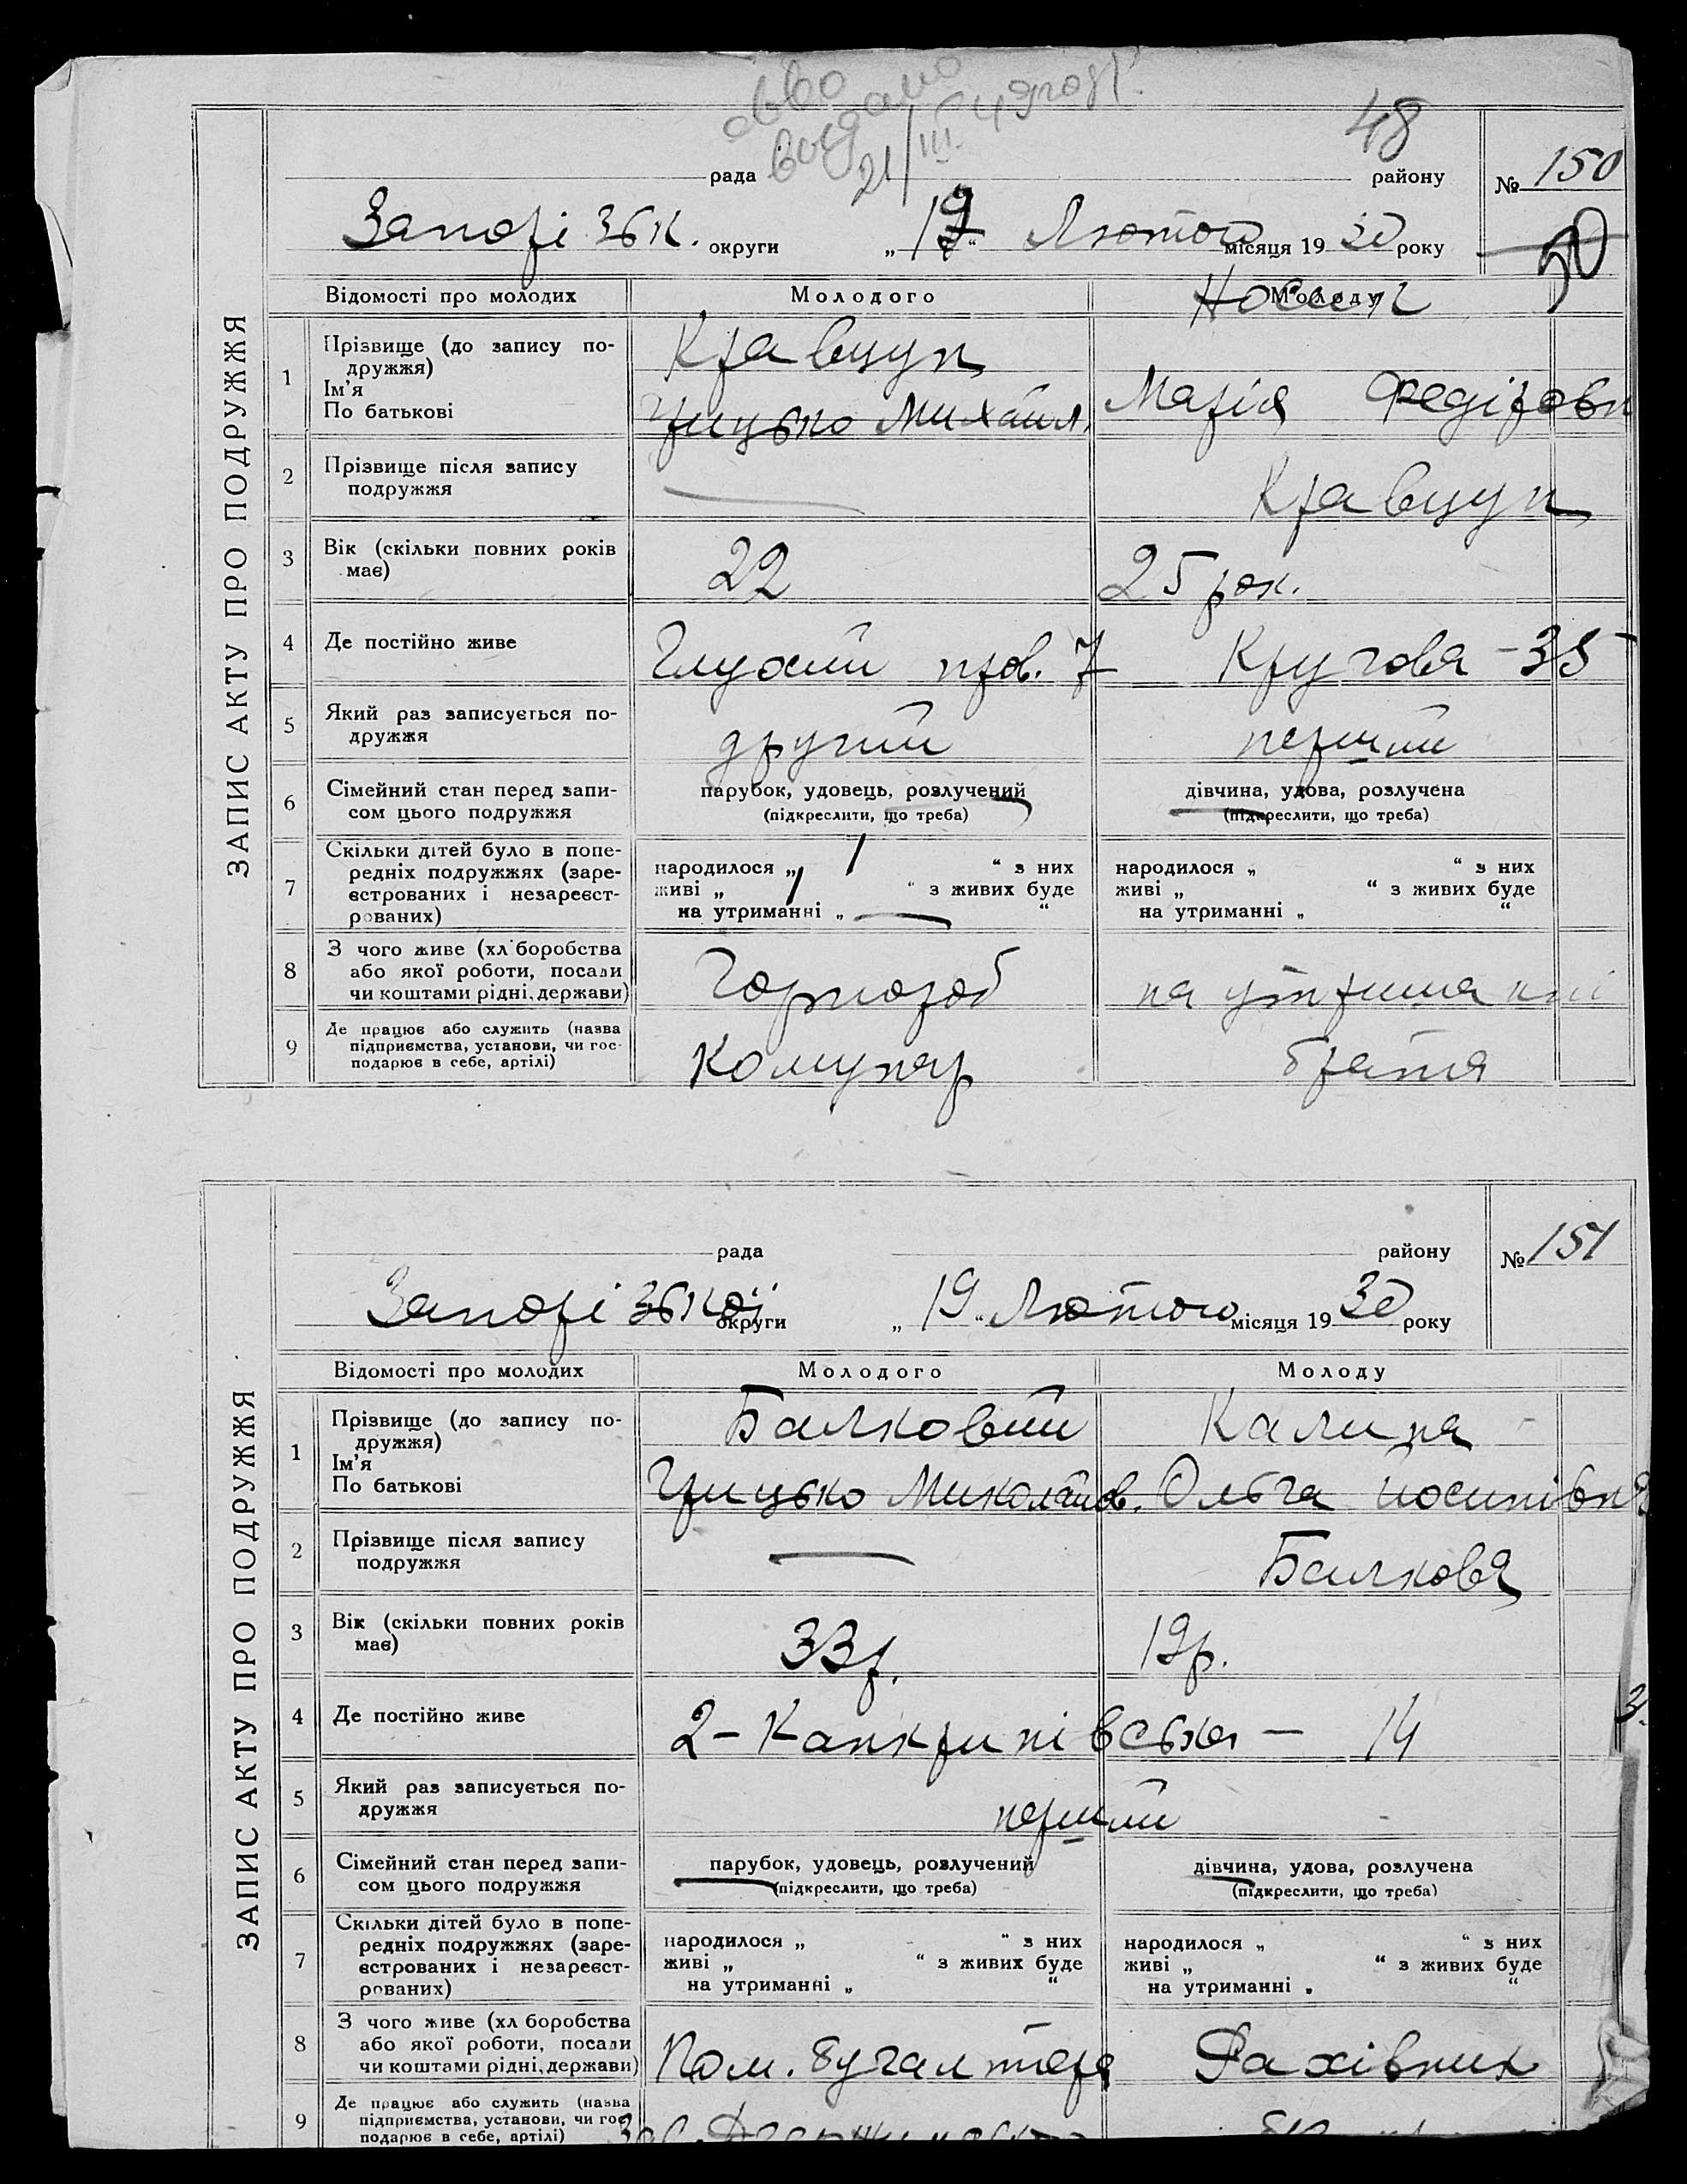 видано
21/III 49 году
48
рада району № 150
Запорізьк. округи „19“ Лютого місяця 1930 року
50
ЗАПИС АКТУ ПРО ПОДРУЖЖЯ
Відомості про молодих Молодого Молоду
1 Прізвище (до запису по-
дружжя)
Ім'я
По батькові
Кравцун
Грицько Михайл.
Марія Федірівн
2 Прізвище після запису
подружжя
—
Кравцун
3 Вік (скільки повних років
має)
22
25 рок.
4 Де постійно живе
Глухий пров. 7
Кругова - 35
5 Який раз записується по-
дружжя
другий
перший
6 Сімейний стан перед запи-
сом цього подружжя
парубок, удовець, розлучений
(підкреслити, що треба)
дівчина, удова, розлучена
(підкреслити, що треба)
7 Скільки дітей було в попе-
редніх подружжях (заре-
єстрованих і незареєст-
рованих)
народилося „ 1 “ з них
живі „ 1 “ з живих буде
на утриманні „ — “
народилося „ “ з них
живі „ “ з живих буде
на утриманні „ “
8 З чого живе (хл боробства
або якої роботи, посади
чи коштами рідні, держави)
Горнороб
на утриманні
9 Де працює або служить (назва
підприємства, установи, чи гос-
подарює в себе, артілі)
Комунар
брата
рада району № 151
Запорізької округи „19“ Лютого місяця 1930 року
ЗАПИС АКТУ ПРО ПОДРУЖЖЯ
Відомості про молодих Молодого Молоду
1 Прізвище (до запису по-
дружжя)
Ім'я
По батькові
Балковий
Грицько Миколайов.
Калина
Ольга Йосипівна
2 Прізвище після запису
подружжя
—
Балкова
3 Вік (скільки повних років
має)
33 р.
19р.
4 Де постійно живе
2 - Канкринівська — 14
5 Який раз записується по-
дружжя
перший
6 Сімейний стан перед запи-
сом цього подружжя
парубок, удовець, розлучений
(підкреслити, що треба)
дівчина, удова, розлучена
(підкреслити, що треба)
7 Скільки дітей було в попе-
редніх подружжях (заре-
єстрованих і незареєст-
рованих)
народилося „ “ з них
живі „ “ з живих буде
на утриманні „ “
народилося „ “ з них
живі „ “ з живих буде
на утриманні „ “
8 З чого живе (хл боробства
або якої роботи, посади
чи коштами рідні, держави)
Пом. бугалтера
Рахівник
9 Де працює або служить (назва
підприємства, установи, чи гос
подарює в себе, артілі)